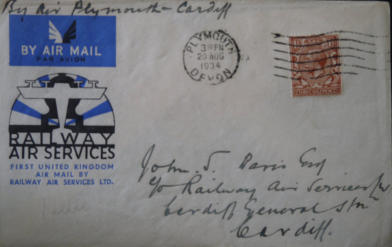 By Air Plymouth - Cardiff
BY AIR MAIL
PAR AVION
PLYMOUTH
20 AUG
1934
DEVON
RAILWAY
AIR SERVICES
FIRST UNITED KINGDOM
AIR MAIL BY
RAILWAY AIR SERVICES LTD.
John S. Davis Esq
c/o Railway Air Services
Cardiff General Stn
Cardiff.